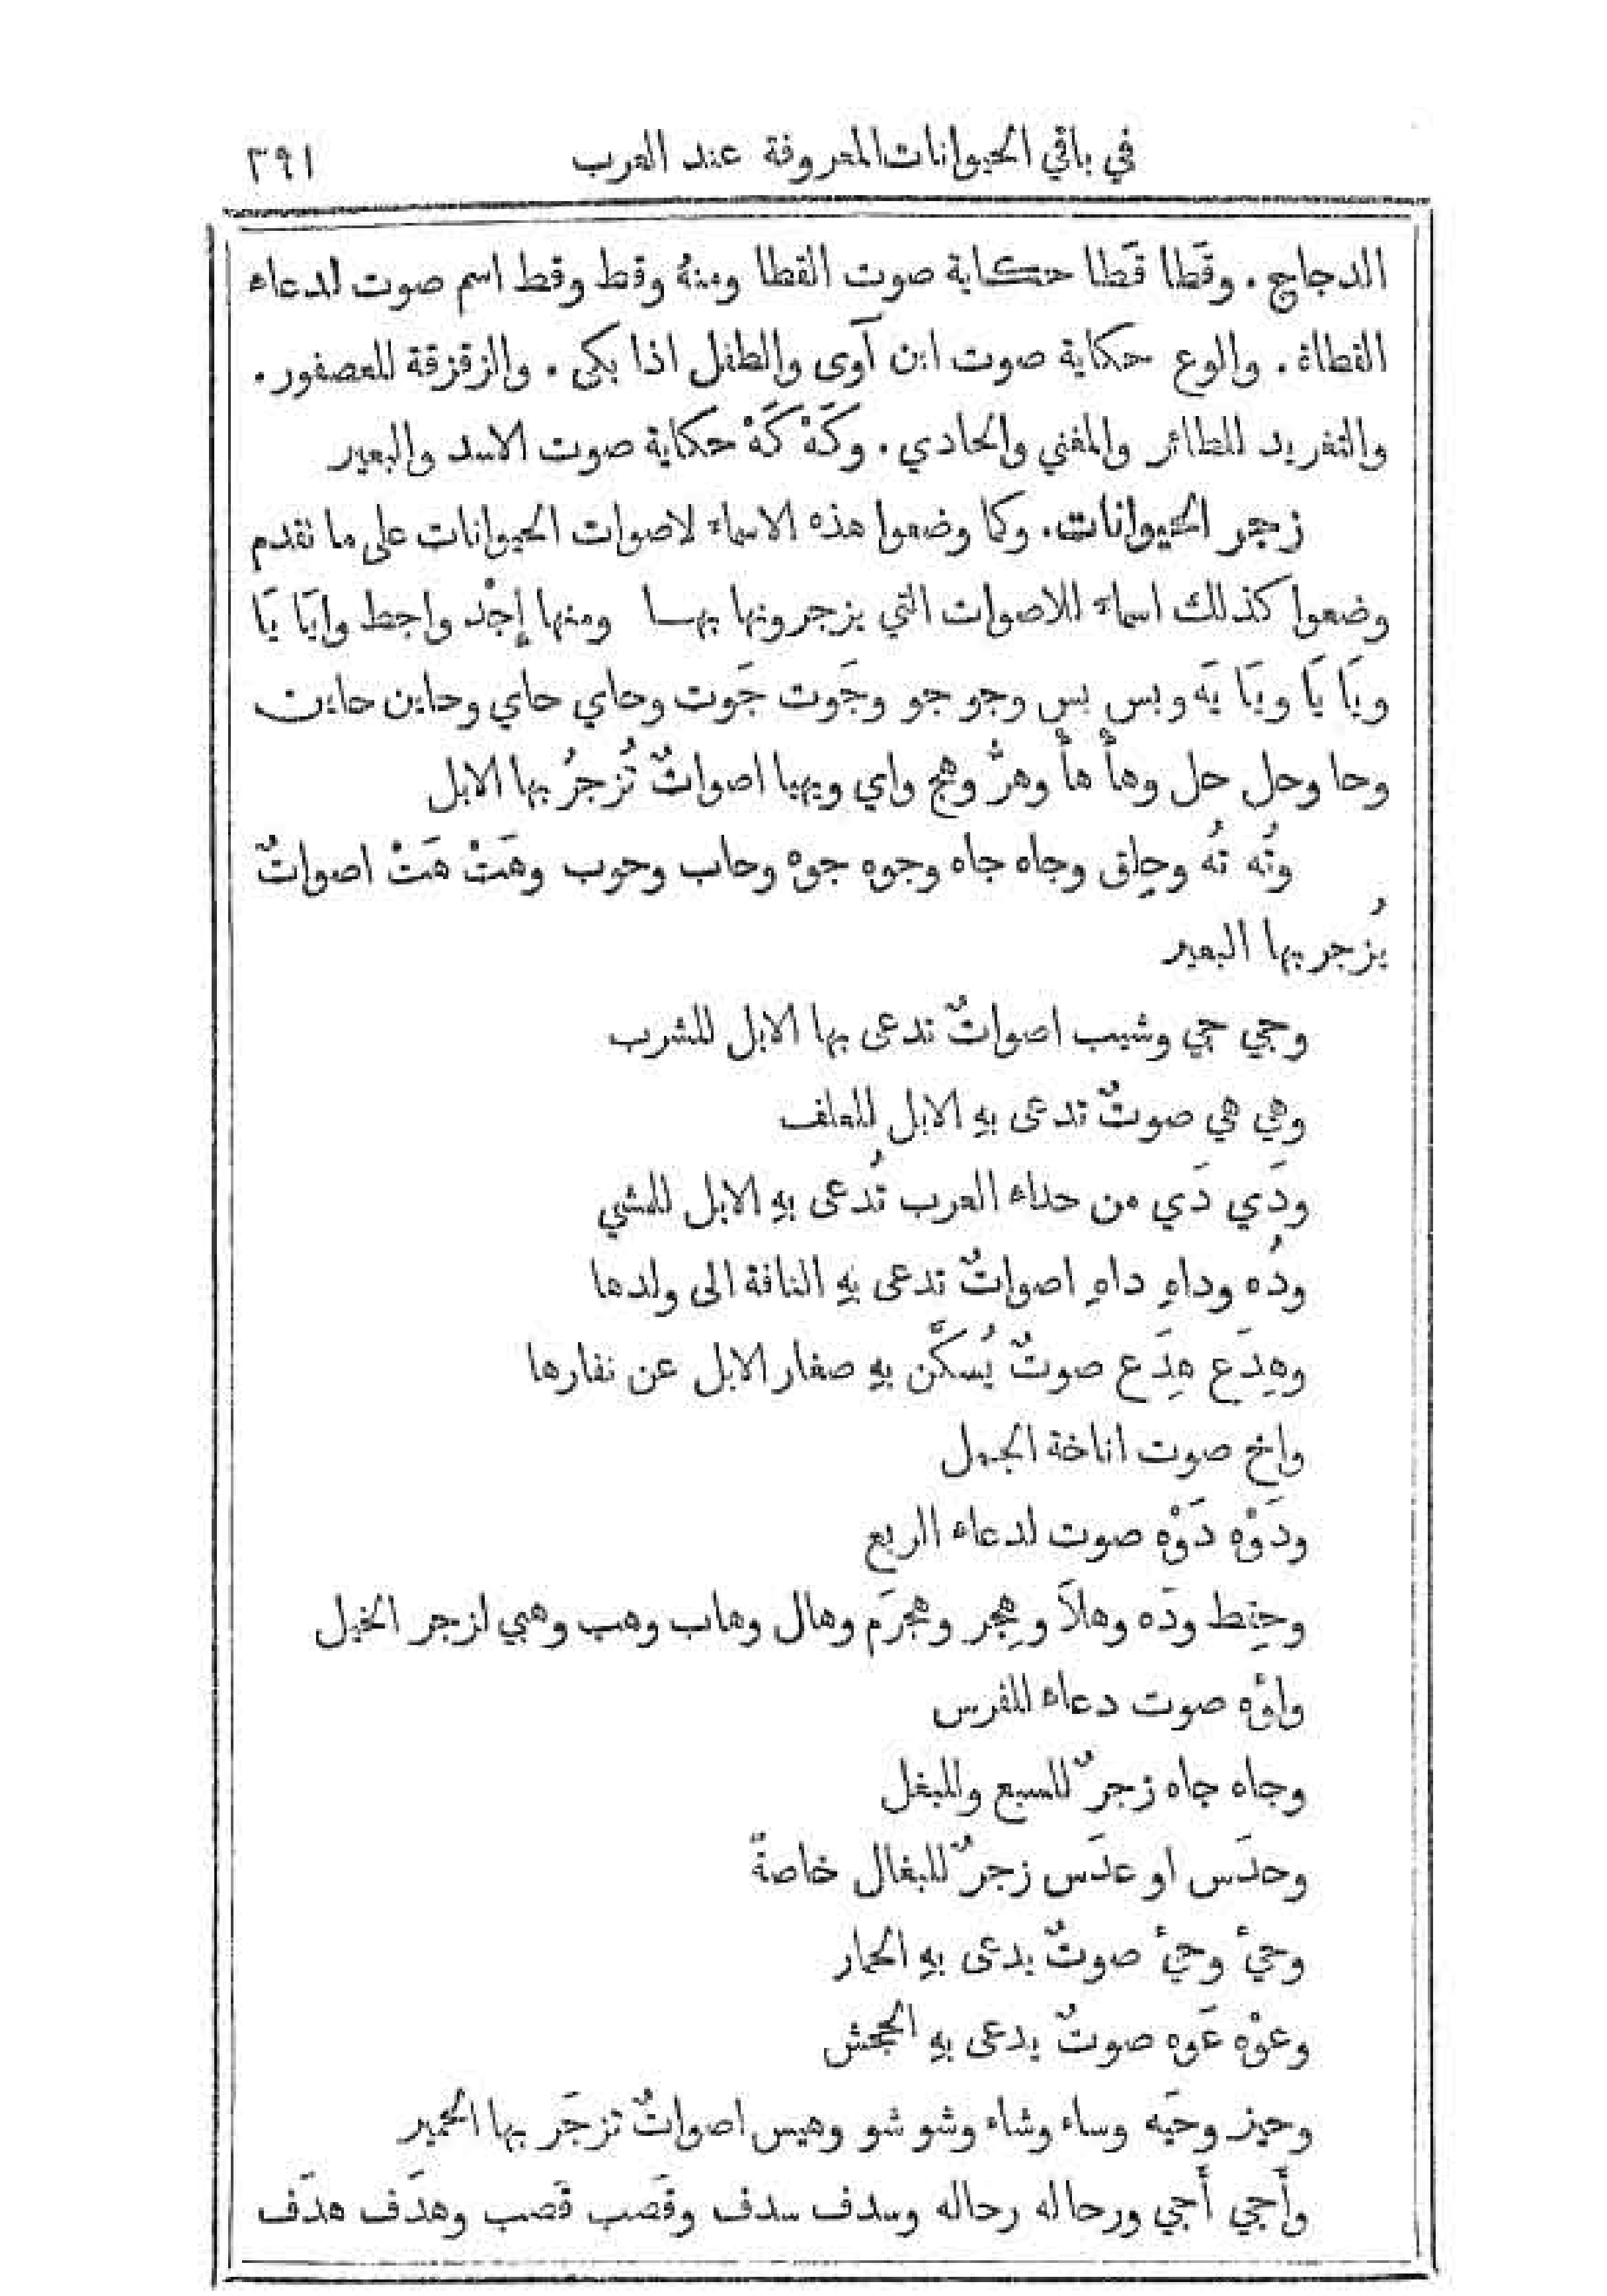 في باقي الحيوانات المعروفة عند العرب ٣٩١
الدجاج . وقَطا قَطا حكاية صوت القطا ومنهُ وقط وقط اسم صوت لدعاء
القطاة . والوع حكاية صوت ابن آوى والطفل اذا بكى . والزقزقة للعصفور .
والتغريد للطائر والمغني والحادي . وكَهْ كَهْ حكاية صوت الاسد والبعير
زجر الحيوانات . وكما وضعوا هذه الاسماء لاصوات الحيوانات على ما تقدم
وضعوا كذلك اسماء للاصوات التي يزجرونها بهـا ومنها إِجْد واجط وايَا يَا
ويَا يَا ويَا يَه وبس بس وجو جو وجَوت جَوت وحاي حاي وحاين حاين
وحا وحل حل وهأْ هأْ وهرّ وهج واي ويهيا اصواتٌ تُزجرُ بها الابل
وتُه تُه وجِلق وجاه جاه وجوه جوه وحاب وحوب وهَتْ هَتْ اصواتٌ
يُزجر بها البعير
وجي جي وشيب اصواتٌ تدعى بها الابل للشرب
وهي هي صوتٌ تدعى بهِ الابل للعلف
ودَي دَي من حداء العرب تُدعى بهِ الابل للمشي
ودُه وداهِ داهِ اصواتٌ تدعى بهِ الناقة الى ولدها
وهِدَع هِدَع صوتٌ يُسكَّن بهِ صغار الابل عن نفارها
واخ صوت اناخة الجمل
ودَوْه دَوْه صوت لدعاء الربع
وحِنِط ودَه وهلاَ وهِجِر وهجرَم وهال وهاب وهب وهبي لزجر الخيل
واوْه صوت دعاء للفرس
وجاه جاه زجرٌ للسبع وللبغل
وحدَس او عدَس زجرٌ للبغال خاصةً
وحيْ وحيْ صوتٌ يدعى بهِ الحمار
وعوْه عَوه صوتٌ يدعى بهِ الجحش
وحيز وحيَه وساء وشاء وشو شو وهيس اصواتٌ تزجَر بها الحمير
وأَجي أَجي ورحاله رحاله وسدف سدف وقَصب قَصب وهدَف هدَف